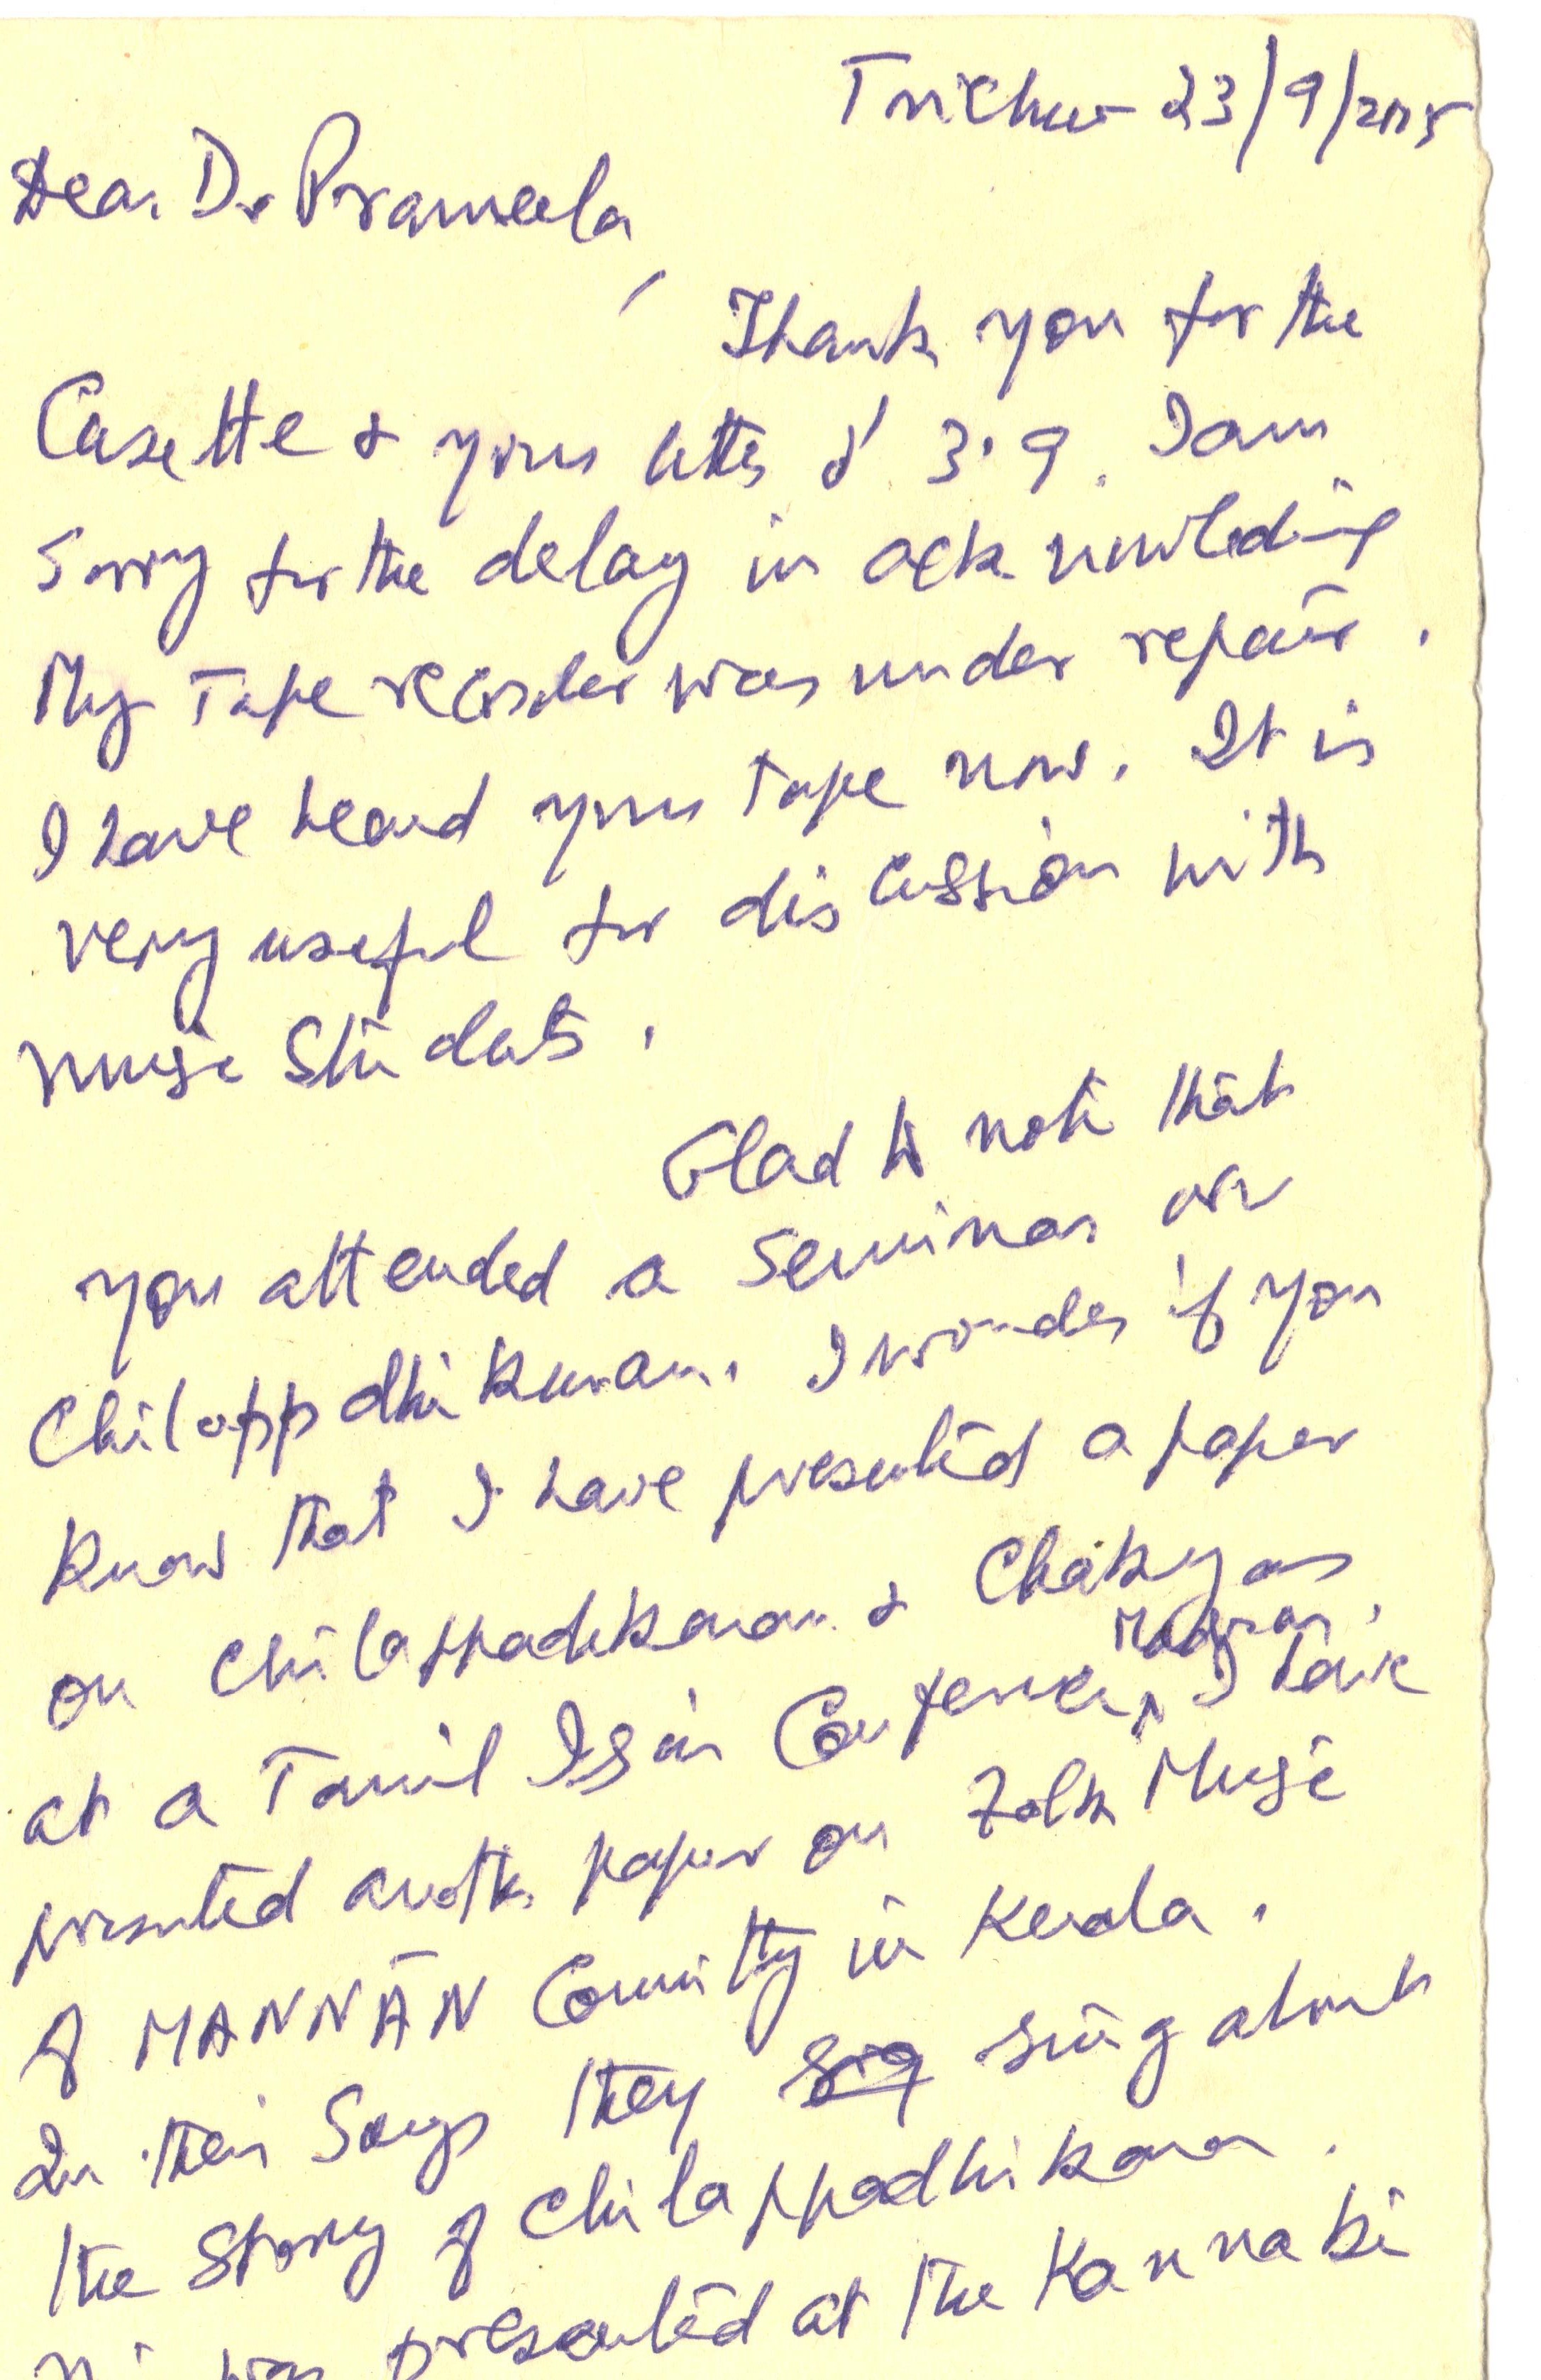 Trichur 23/9/2005
Dear Dr Prameela,
Thank you for the
Casette & your letter d/ 3.9. I am
Sorry for the delay in acknowleding
My Tape recorder was under repair.
I have heard your tape now. It is
very useful for discussion with
music students.
Glad to note that
you attended a Seminar on
Chilappdhikuram. I wonder if you
Know that I have presented a paper
on Chilappadikaram & Chakyar
at a Tamil Isai Conference, Madras. I have
presented another paper on Folk Music
of MANNĀN Comitty in Kerala.
In their Songs they sing about
the Story of Chilappadhikara.
was presented at the Kannaki